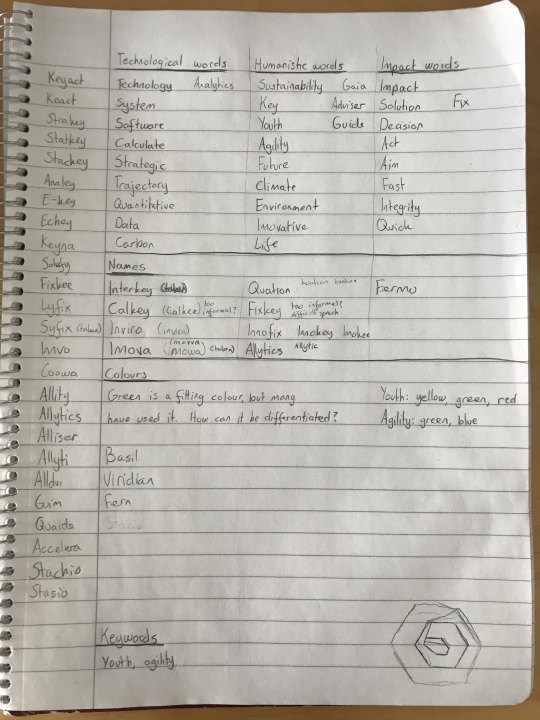 Technological words Humanistic words Impact words
Keyact Technology Analytics Sustainability Gaia Impact
Keact System Key Adviser Solution Fix
Strakey Software Youth Guide Decision
Statkey Calculate Agility Act
Stackey Strategic Future Aim
Analey Trajectory Climate Fast
E-key Quantitative Environment Integrity
Echey Data Inovative Quick
Keyna Carbon Life
Solufy Names
Fixkee Interkey (taken) Quation Fermo
Lyfix Calkey (Calkee) too informal? Fixkey too informal? difficult speech
Syfix (taken) Inviro (invira) Innofix Imokey Imokee
Innvo Imova (imovva) (imowa) (taken) Allytics Allytic
Coowa Colours
Allity Green is a fitting colour, but many Youth: yellow, green, red
Allytics have used it. How can it be differentiated? Agility: green, blue
Alliser
Allyti Basil
Alldvi Viridian
Guim Fern
Quaids Stacio
Accelera
Stachio
Stasio
Keywords
Youth, agility